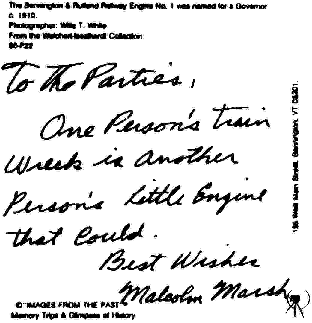 The Bennington & Rutland Railway Engine No. 1 was named for a Governor
c. 1910.
Photographer: Wills T. White
From the Weichert-Isselhardt Collection
To The Parties,
One Person's train
Wreck is another
Person's Little Engine
that Could.
Best Wishes
Malcolm Marsh
© "IMAGES FROM THE PAST"
Memory Trips & Glimpses of History
West Main Street, Bennington, VT 05201